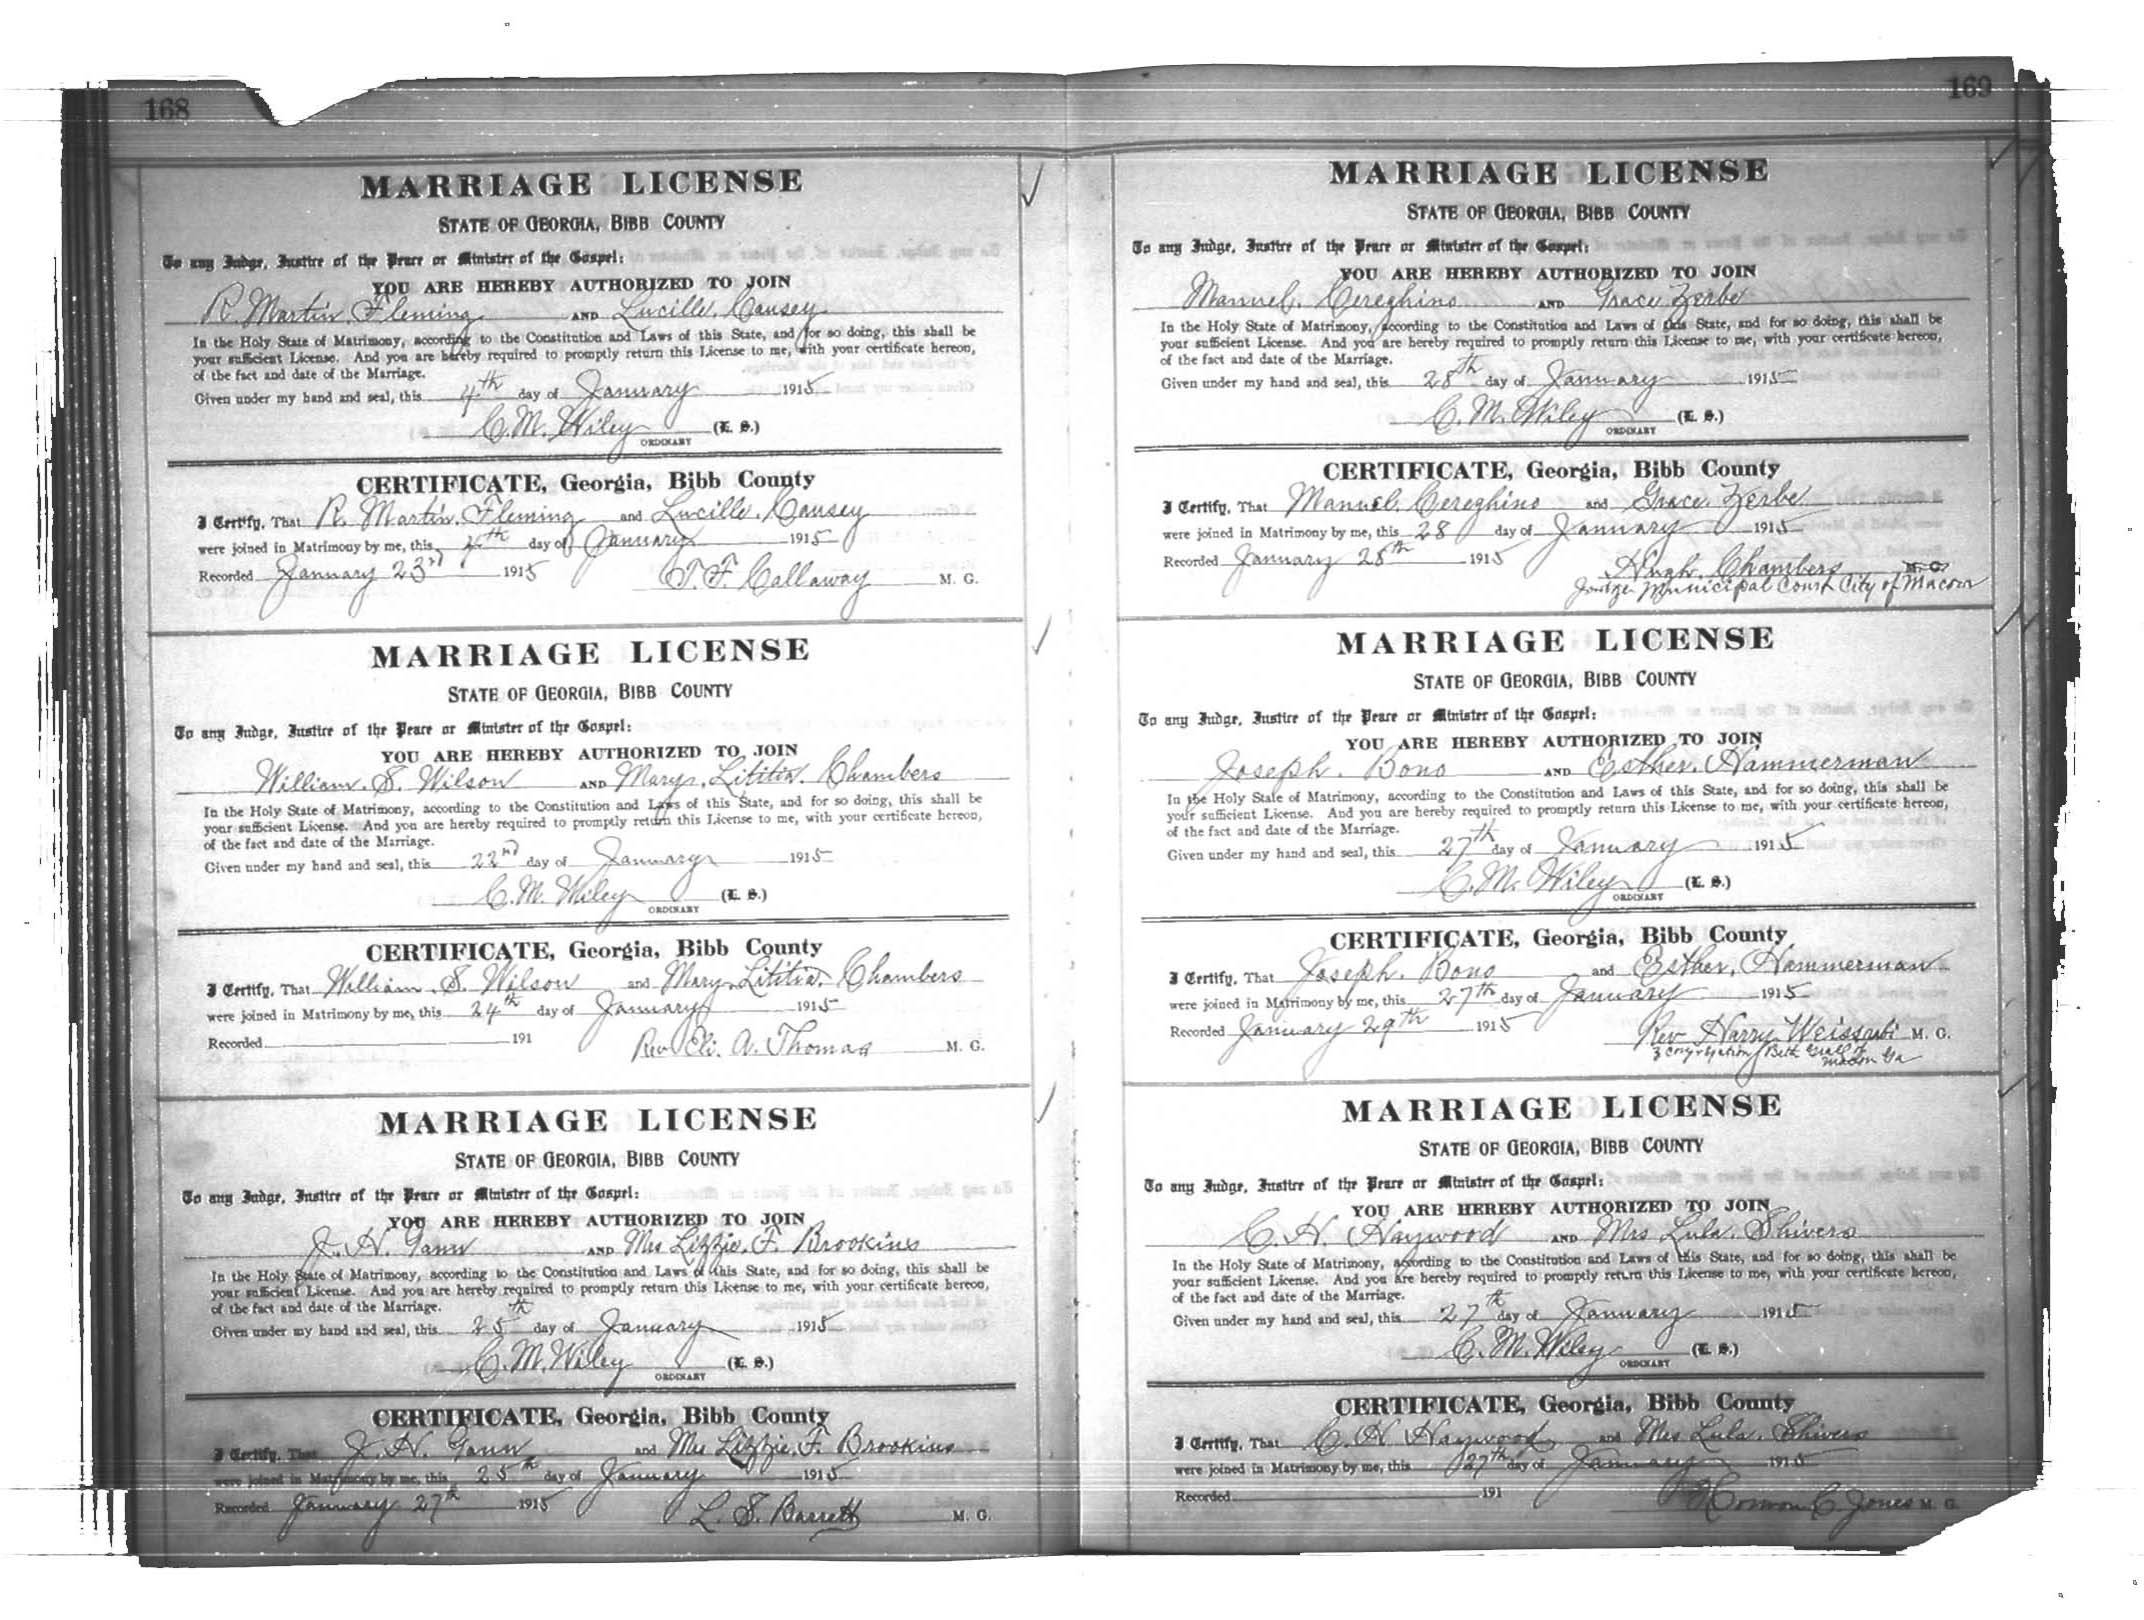 168
MARRIAGE LICENSE
STATE OF GEORGIA, BIBB COUNTY
To any Judge, Justice of the Peace or Minister of the Gospel:
YOU ARE HEREBY AUTHORIZED TO JOIN
R. Martin Fleming AND Lucille Causey
In the Holy State of Matrimony, according to the Constitution and Laws of this State, and for so doing, this shall be
your sufficient License. And you are hereby required to promptly return this License to me, with your certificate hereon,
of the fact and date of the Marriage.
Given under my hand and seal, this 4th day of January 1915
C. M. Wiley (L. S.)
ORDINARY
CERTIFICATE, Georgia, Bibb County
I Certify, That R. Martin Fleming and Lucille Causey
were joined in Matrimony by me, this 4th day of January 1915
Recorded January 23rd 1915 T. F. Callaway M. G.
MARRIAGE LICENSE
STATE OF GEORGIA, BIBB COUNTY
To any Judge, Justice of the Peace or Minister of the Gospel:
YOU ARE HEREBY AUTHORIZED TO JOIN
William S. Wilson AND Mary Lititia Chambers
In the Holy State of Matrimony, according to the Constitution and Laws of this State, and for so doing, this shall be
your sufficient License. And you are hereby required to promptly return this License to me, with your certificate hereon,
of the fact and date of the Marriage.
Given under my hand and seal, this 22nd day of January 1915
C. M. Wiley (L. S.)
ORDINARY
CERTIFICATE, Georgia, Bibb County
I Certify, That William S. Wilson and Mary Lititia Chambers
were joined in Matrimony by me, this 24th day of January 1915
Recorded 191 Rev Eli. A. Thomas M. G.
MARRIAGE LICENSE
STATE OF GEORGIA, BIBB COUNTY
To any Judge, Justice of the Peace or Minister of the Gospel:
YOU ARE HEREBY AUTHORIZED TO JOIN
J. H. Gann AND Mrs Lizzie F. Brookins
In the Holy State of Matrimony, according to the Constitution and Laws of this State, and for so doing, this shall be
your sufficient License. And you are hereby required to promptly return this License to me, with your certificate hereon,
of the fact and date of the Marriage.
Given under my hand and seal, this 25th day of January 1915
C. M. Wiley (L. S.)
ORDINARY
CERTIFICATE, Georgia, Bibb County
I Certify, That J. H. Gann and Mrs Lizzie F. Brookins
were joined in Matrimony by me, this 25th day of January 1915
Recorded January 27th 1915 L. S. Barrett M. G.
169
MARRIAGE LICENSE
STATE OF GEORGIA, BIBB COUNTY
To any Judge, Justice of the Peace or Minister of the Gospel:
YOU ARE HEREBY AUTHORIZED TO JOIN
Manuel Cereghino AND Grace Zerbe
In the Holy State of Matrimony, according to the Constitution and Laws of this State, and for so doing, this shall be
your sufficient License. And you are hereby required to promptly return this License to me, with your certificate hereon,
of the fact and date of the Marriage.
Given under my hand and seal, this 28th day of January 1915
C. M. Wiley (L. S.)
ORDINARY
CERTIFICATE, Georgia, Bibb County
I Certify, That Manuel Cereghino and Grace Zerbe
were joined in Matrimony by me, this 28 day of January 1915
Recorded January 28th 1915 Hugh Chambers M. G.
Judge Municipal Court City of Macon
MARRIAGE LICENSE
STATE OF GEORGIA, BIBB COUNTY
To any Judge, Justice of the Peace or Minister of the Gospel:
YOU ARE HEREBY AUTHORIZED TO JOIN
Joseph Bono AND Esther Hammerman
In the Holy State of Matrimony, according to the Constitution and Laws of this State, and for so doing, this shall be
your sufficient License. And you are hereby required to promptly return this License to me, with your certificate hereon,
of the fact and date of the Marriage.
Given under my hand and seal, this 27th day of January 1915
C. M. Wiley (L. S.)
ORDINARY
CERTIFICATE, Georgia, Bibb County
I Certify, That Joseph Bono and Esther Hammerman
were joined in Matrimony by me, this 27th day of January 1915
Recorded January 29th 1915 Rev Harry M. G.
Congregation Beth
Macon Ga
MARRIAGE LICENSE
STATE OF GEORGIA, BIBB COUNTY
To any Judge, Justice of the Peace or Minister of the Gospel:
YOU ARE HEREBY AUTHORIZED TO JOIN
C. H. Haywood AND Mrs Lula Shivers
In the Holy State of Matrimony, according to the Constitution and Laws of this State, and for so doing, this shall be
your sufficient License. And you are hereby required to promptly return this License to me, with your certificate hereon,
of the fact and date of the Marriage.
Given under my hand and seal, this 27th day of January 1915
C. M. Wiley (L. S.)
ORDINARY
CERTIFICATE, Georgia, Bibb County
I Certify, That C. H. Haywood and Mrs Lula Shivers
were joined in Matrimony by me, this 27th day of January 1915
Recorded 191 C. Jones M. G.